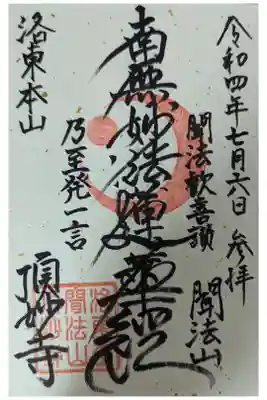 令和四年七月六日 参拝
聞法山
聞法歓喜讃
南無妙法蓮華経
乃至発一言
洛東本山
頂妙寺